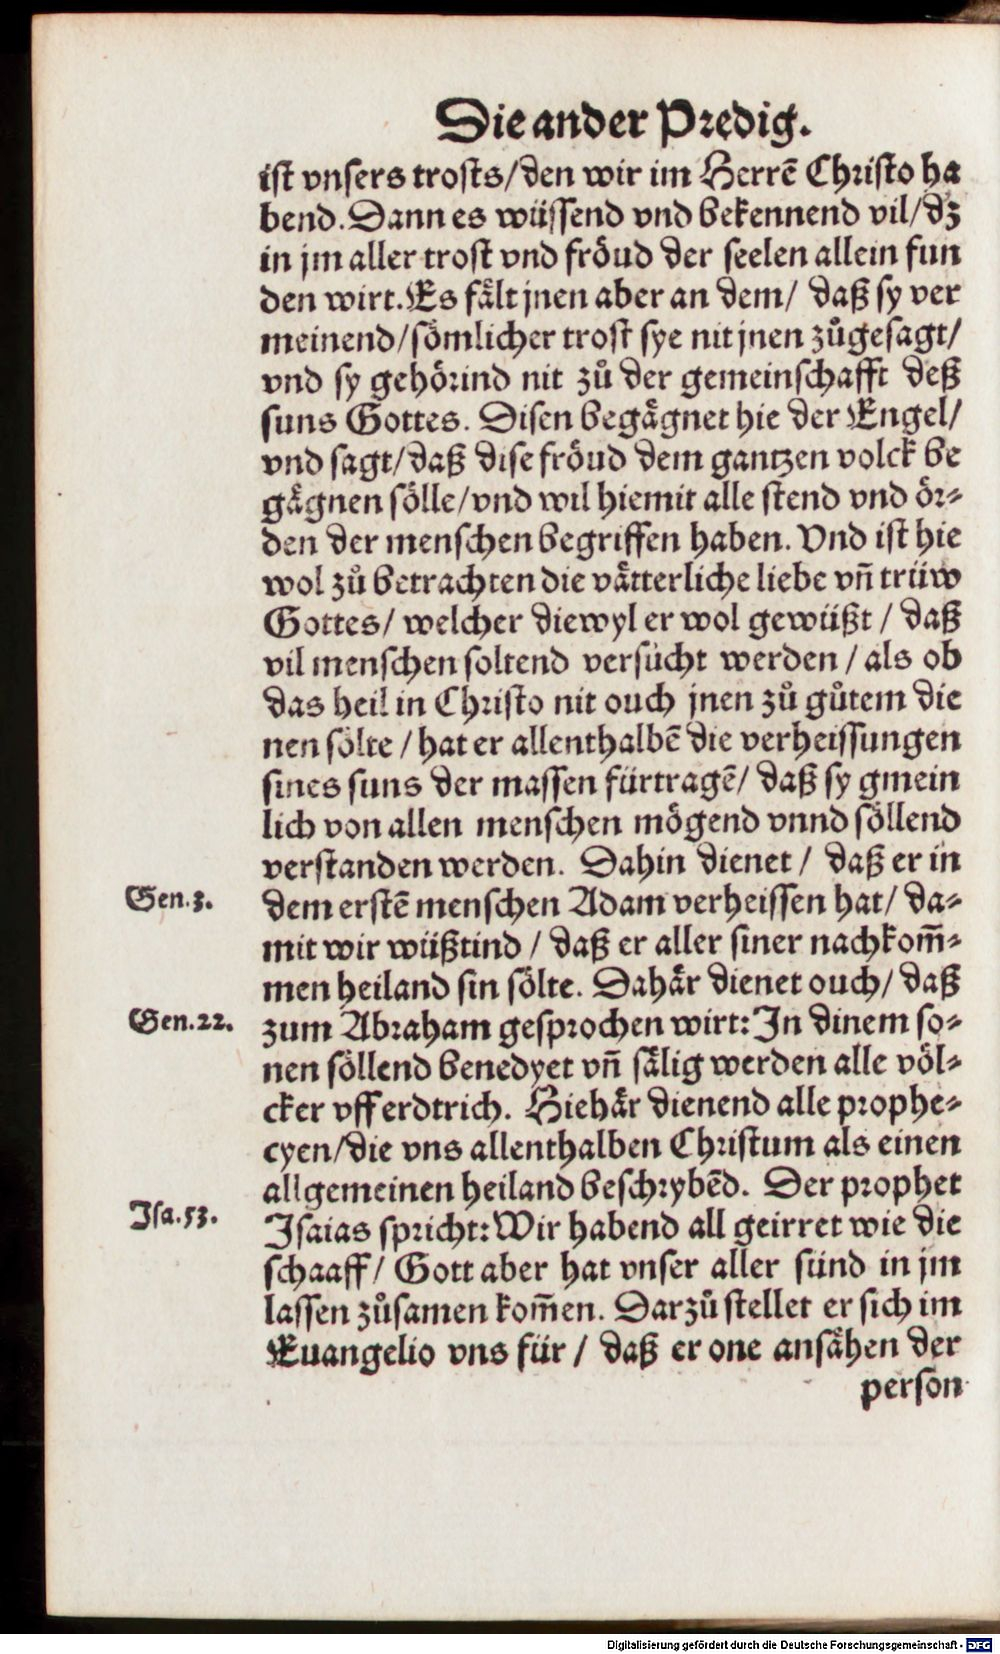 Die ander Predig.
ist vnsers trosts/den wir im Herrẽ Christo ha
bend. Dann es wüssend vnd bekennend vil/dz
in jm aller trost vnd fröud der seelen allein fun
den wirt. Es fält jnen aber an dem/ daß sy ver
meinend/sömlicher trost sye nit jnen zůgesagt/
vnd sy gehörind nit zů der gemeinschafft deß
suns Gottes. Disen begägnet hie der Engel/
vnd sagt/daß dise fröud dem gantzen volck be
gägnen sölle/vnd wil hiemit alle stend vnd ör-
den der menschen begriffen haben. Vnd ist hie
wol zů betrachten die vätterliche liebe vñ trüw
Gottes/ welcher diewyl er wol gewüßt / daß
vil menschen soltend versücht werden / als ob
das heil in Christo nit ouch jnen zů gůtem die
nen sölte / hat er allenthalbẽ die verheissungen
sines suns der massen fürtragẽ/ daß sy gmein
lich von allen menschen mögend vnnd söllend
verstanden werden. Dahin dienet / daß er in
Gen.3. dem erstẽ menschen Adam verheissen hat/ da-
mit wir wüßtind / daß er aller siner nachkom̃-
men heiland sin sölte. Dahär dienet ouch/ daß
Gen.22. zum Abraham gesprochen wirt: In dinem so-
nen söllend benedyet vñ sälig werden alle völ-
cker vff erdtrich. Hiehär dienend alle prophe-
cyen/die vns allenthalben Christum als einen
allgemeinen heiland beschrybẽd. Der prophet
Isa.53. Isaias spricht: Wir habend all geirret wie die
schaaff/ Gott aber hat vnser aller sünd in jm
lassen zůsamen kom̃en. Darzů stellet er sich im
Euangelio vns für / daß er one ansähen der
person
Digitalisierung gefördert durch die Deutsche Forschungsgemeinschaft - DFG